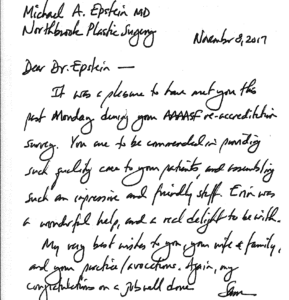 Michael A. Epstein MD
Northbrook Plastic Sugery
November 8, 2017
Dear Dr. Epstein —
It was a pleasure to have met you this
past Monday during your AAAASF re-accreditation
survey. You are to be commended in providing
such quality care to your patients, and assembling
such an impressive and friendly staff. Erin was
a wonderful help, and a real delight to be with.
My very best wishes to you, your wife & family,
and your practice/avocations. Again, my
congratulations on a job well done.